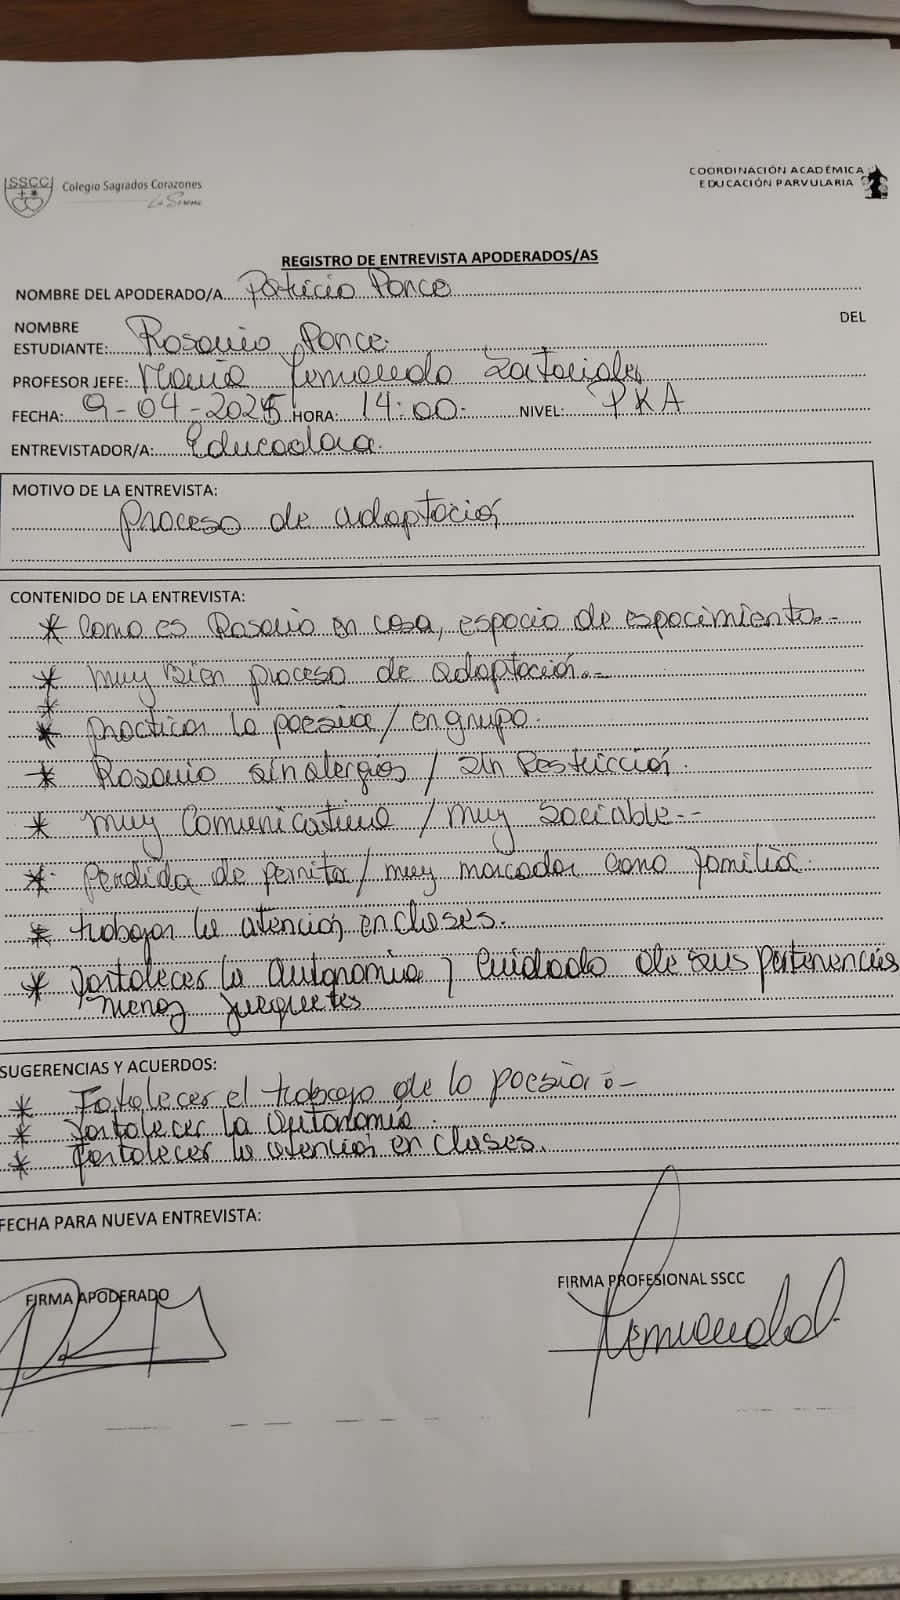 SSCC
Colegio Sagrados Corazones
La Serena
COORDINACIÓN ACADÉMICA
EDUCACIÓN PARVULARIA
REGISTRO DE ENTREVISTA APODERADOS/AS
NOMBRE DEL APODERADO/A Patricio Ponce
NOMBRE DEL
ESTUDIANTE: Rosario Ponce.
PROFESOR JEFE: María Fernanda
FECHA: 9-04-2025 HORA: 14:00. NIVEL: PKA
ENTREVISTADOR/A: Educadora.
MOTIVO DE LA ENTREVISTA:
Proceso de adaptación
CONTENIDO DE LA ENTREVISTA:
* Como es Rosario en casa, espacio de esparcimiento.-
* Muy bien proceso de adaptación.-
*
* Practicar la poesía / en grupo.
* Rosario sin alergias / sin Restricción.
* Muy Comunicativa / Muy Sociable.--
* Perdida de perrita / muy marcador como familia.
* trabajar la atención en clases.
* fortalecer la autonomía y Cuidado de sus pertenencias
menos juguetes
SUGERENCIAS Y ACUERDOS:
* Fortalecer el trabajo de la poesía.-
* fortalecer la autonomía.
* fortalecer la atención en clases.
FECHA PARA NUEVA ENTREVISTA:
FIRMA APODERADO
FIRMA PROFESIONAL SSCC